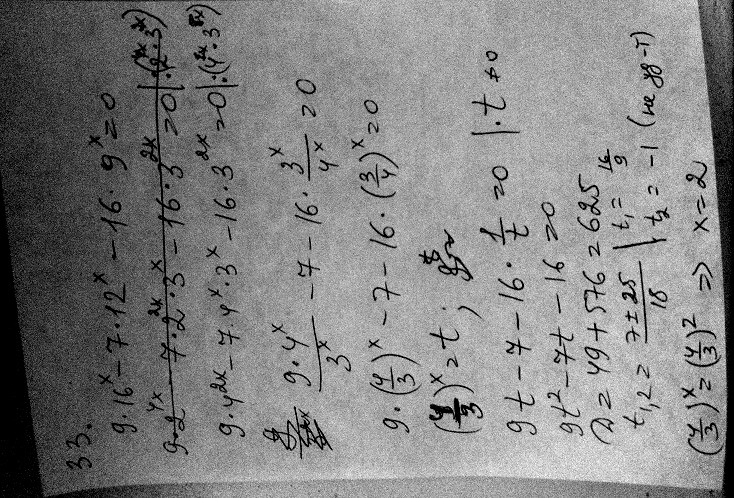 33.
9·16^x - 7·12^x - 16·9^x = 0
9·2^4x - 7·2^2x·3^x - 16·3^2x = 0 |:(
9·4^2x - 7·4^x·3^x - 16·3^2x = 0 |:(4^x·3^x)
9·4^x/3^x - 7 - 16·3^x/4^x = 0
9·(4/3)^x - 7 - 16·(3/4)^x = 0
(4/3)^x = t;
9t - 7 - 16·1/t = 0 |·t ≠ 0
9t² - 7t - 16 = 0
D = 49 + 576 = 625
t1,2 = (7 ± 25)/18 | t1 = 16/9
t2 = -1 (не уд-т)
(4/3)^x = (4/3)² => x = 2